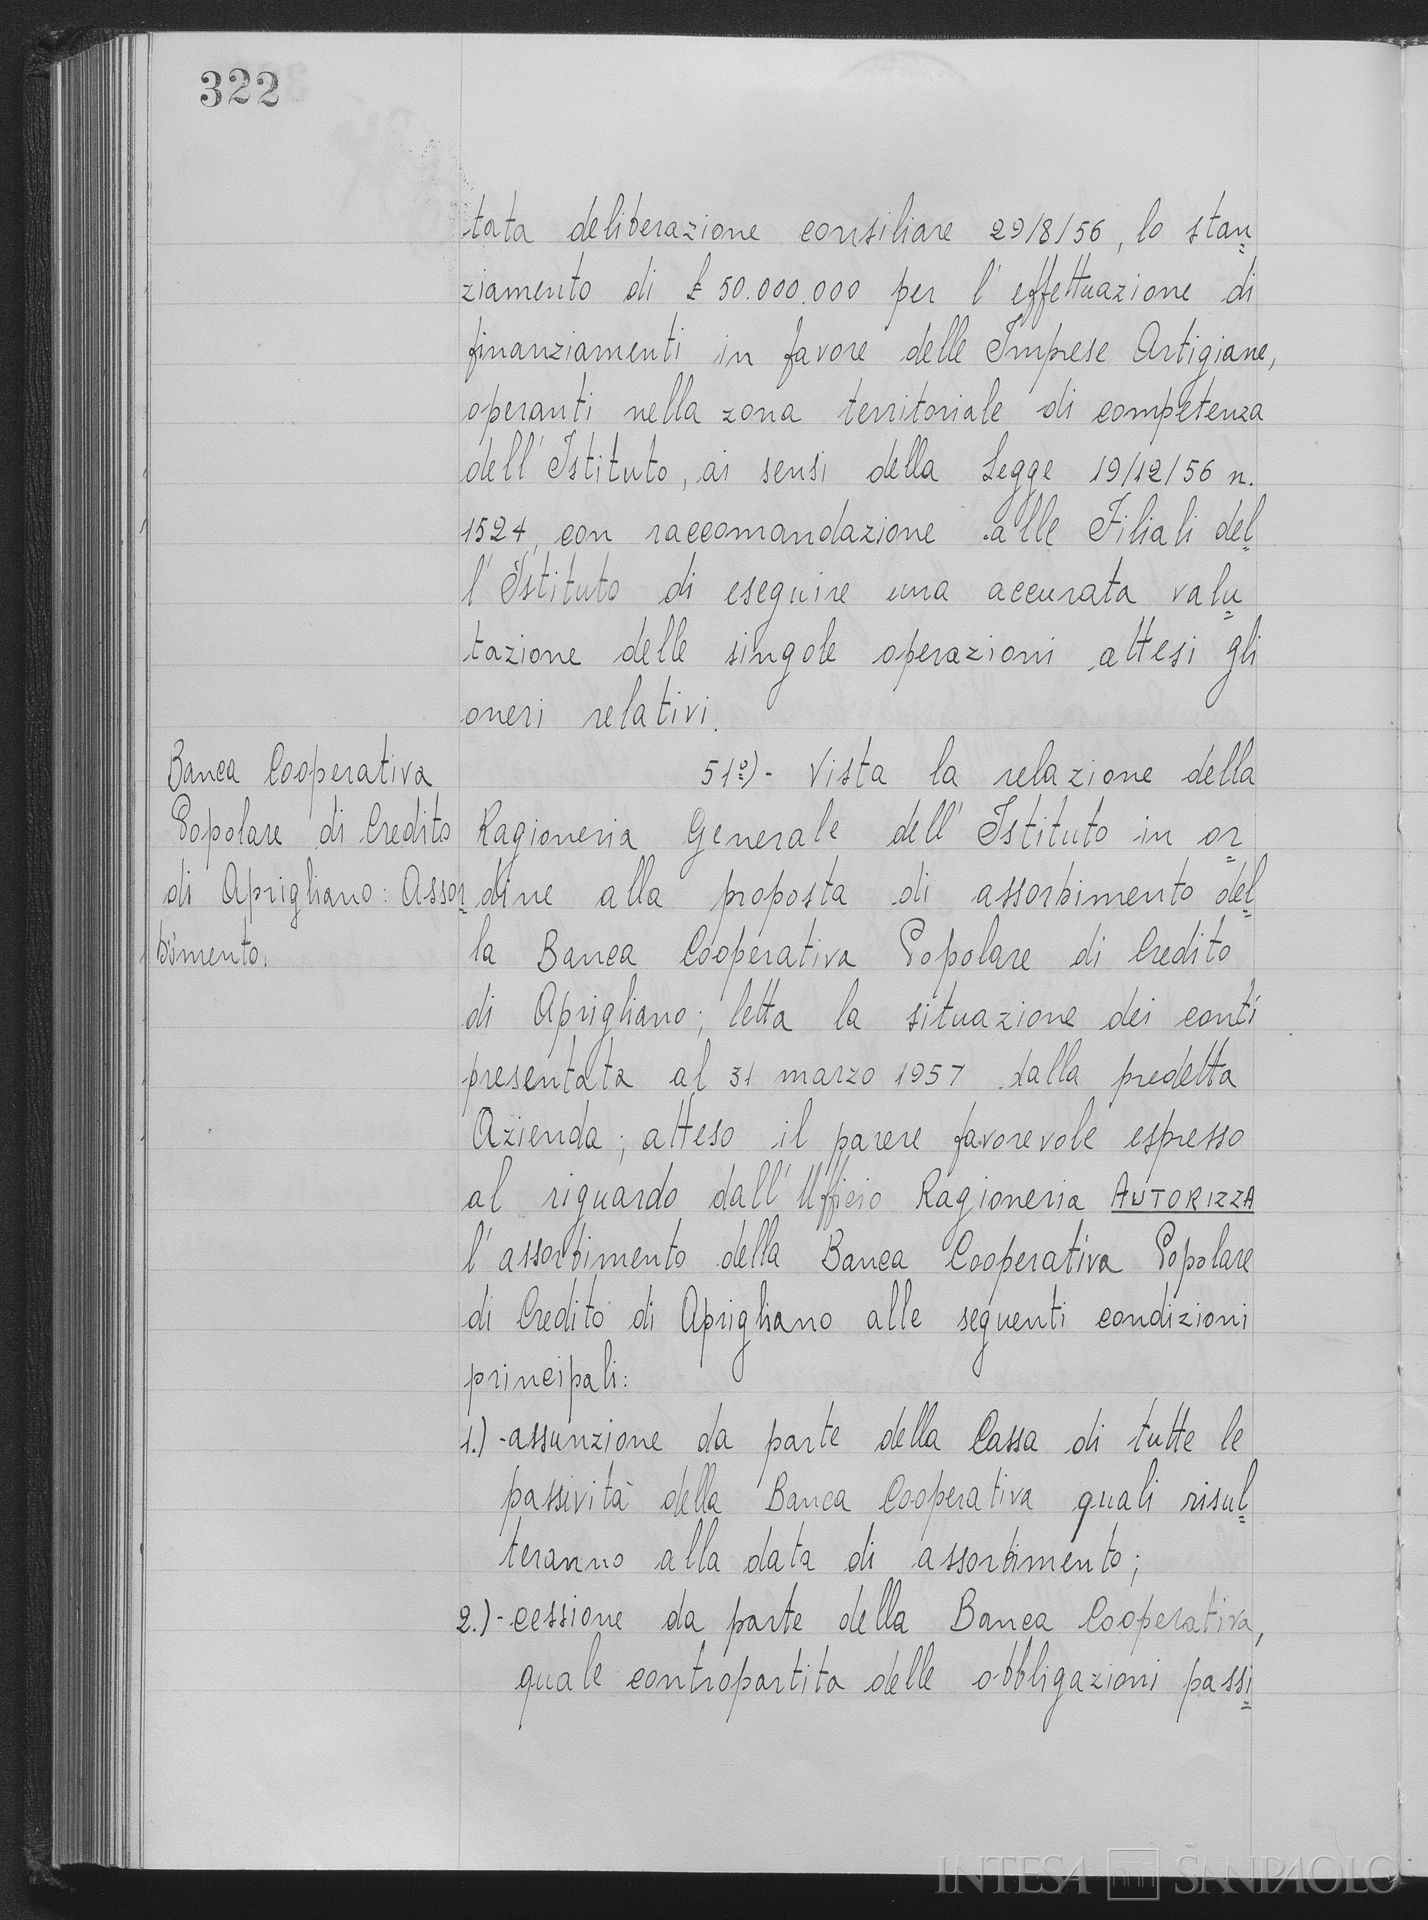 322
tata deliberazione consiliare 29/8/56, lo stan=
ziamento di £ 50.000.000 per l'effettuazione di
finanziamenti in favore delle Imprese Artigiane,
operanti nella zona territoriale di competenza
dell'Istituto, ai sensi della Legge 19/12/56 n.
1524, con raccomandazione alle Filiali del=
l'Istituto di eseguire una accurata valu=
tazione delle singole operazioni attesi gli
oneri relativi.
Banca Cooperativa
Popolare di Credito
di Aprigliano: Assor=
bimento.
51º)- Vista la relazione della
Ragioneria Generale dell'Istituto in or=
dine alla proposta di assorbimento del=
la Banca Cooperativa Popolare di Credito
di Aprigliano; letta la situazione dei conti
presentata al 31 marzo 1957 dalla predetta
Azienda; atteso il parere favorevole espresso
al riguardo dall'Ufficio Ragioneria AUTORIZZA
l'assorbimento della Banca Cooperativa Popolare
di Credito di Aprigliano alle seguenti condizioni
principali:
1.)-assunzione da parte della Cassa di tutte le
passività della Banca Cooperativa quali risul=
teranno alla data di assorbimento;
2.)-cessione da parte della Banca Cooperativa,
quale contropartita delle obbligazioni passi=
INTESA SANPAOLO